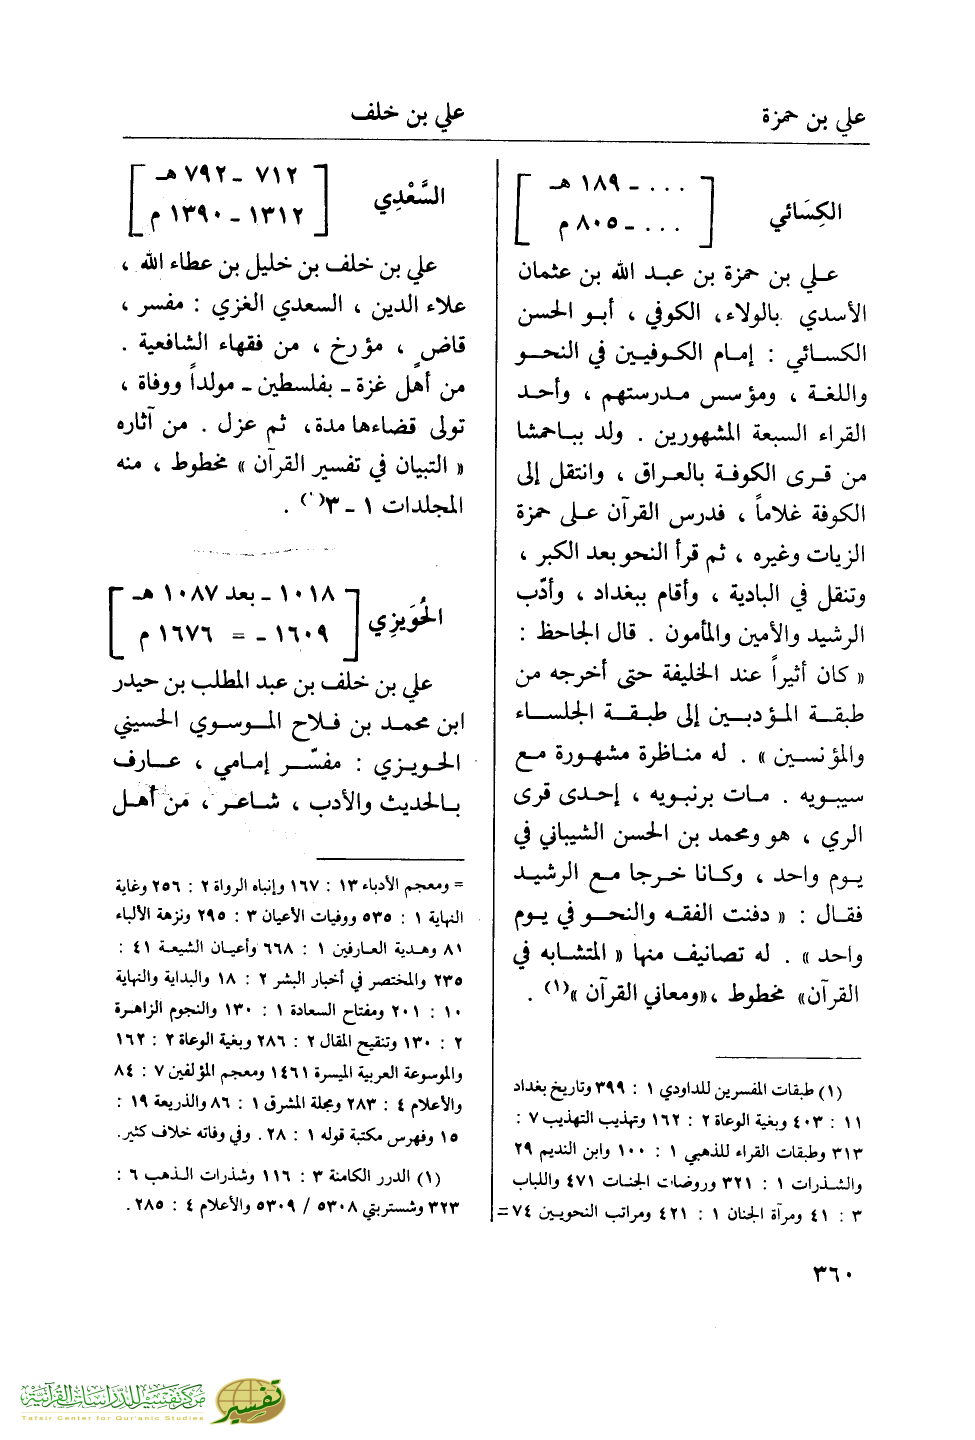 علي بن حمزة
علي بن خلف
الكِسَائي
[ ... - ١٨٩ هـ
... - ٨٠٥ م ]
علي بن حمزة بن عبد الله بن عثمان
الأسدي بالولاء، الكوفي ، أبو الحسن
الكسائي : إمام الكوفيين في النحو
واللغة ، ومؤسس مدرستهم ، وأحد
القراء السبعة المشهورين . ولد بباحمشا
من قرى الكوفة بالعراق ، وانتقل إلى
الكوفة غلاماً ، فدرس القرآن على حمزة
الزيات وغيره ، ثم قرأ النحو بعد الكبر ،
وتنقل في البادية ، وأقام ببغداد ، وأدّب
الرشيد والأمين والمأمون . قال الجاحظ :
« كان أثيراً عند الخليفة حتى أخرجه من
طبقة المؤدبين إلى طبقة الجلساء
والمؤنسين » . له مناظرة مشهورة مع
سيبويه . مات برنبويه ، إحدى قرى
الري ، هو ومحمد بن الحسن الشيباني في
يوم واحد ، وكانا خرجا مع الرشيد
فقال : « دفنت الفقه والنحو في يوم
واحد » . له تصانيف منها « المتشابه في
القرآن» مخطوط ،«ومعاني القرآن »(١) .
(١) طبقات المفسرين للداودي ١ : ٣٩٩ وتاريخ بغداد
١١ : ٤٠٣ وبغية الوعاة ٢ : ١٦٢ وتهذيب التهذيب ٧ :
٣١٣ وطبقات القراء للذهبي ١ : ١٠٠ وابن النديم ٢٩
والشذرات ١ : ٣٢١ وروضات الجنات ٤٧١ واللباب
٣ : ٤١ ومرآة الجنان ١ : ٤٢١ ومراتب النحويين ٧٤=
السَّعْدِي
[ ٧١٢ - ٧٩٢ هـ
١٣١٢ - ١٣٩٠ م ]
علي بن خلف بن خليل بن عطاء الله ،
علاء الدين ، السعدي الغزي : مفسر ،
قاضٍ ، مؤرخ ، من فقهاء الشافعية .
من أهل غزة - بفلسطين - مولداً ووفاة ،
تولى قضاءها مدة، ثم عزل . من آثاره
« التبيان في تفسير القرآن » مخطوط ، منه
المجلدات ١ - ٣(١) .
الحُوَيزِي
[ ١٠١٨ - بعد ١٠٨٧ هـ
١٦٠٩ - = ١٦٧٦ م ]
علي بن خلف بن عبد المطلب بن حيدر
ابن محمد بن فلاح الموسوي الحسيني
الحويزي : مفسّر إمامي ، عارف
بالحديث والأدب ، شاعر ، من أهل
= ومعجم الأدباء ١٣ : ١٦٧ وإنباه الرواة ٢ : ٢٥٦ وغاية
النهاية ١ : ٥٣٥ ووفيات الأعيان ٣ : ٢٩٥ ونزهة الألباء
٨١ وهدية العارفين ١ : ٦٦٨ وأعيان الشيعة ٤١ :
٢٣٥ والمختصر في أخبار البشر ٢ : ١٨ والبداية والنهاية
١٠ : ٢٠١ ومفتاح السعادة ١ : ١٣٠ والنجوم الزاهرة
٢ : ١٣٠ وتنقيح المقال ٢ : ٢٨٦ وبغية الوعاة ٢ : ١٦٢
والموسوعة العربية الميسرة ١٤٦١ ومعجم المؤلفين ٧ : ٨٤
والأعلام ٤ : ٢٨٣ ومجلة المشرق ١ : ٨٦ والذريعة ١٩ :
١٥ وفهرس مكتبة قوله ١ : ٢٨ . وفي وفاته خلاف كثير.
(١) الدرر الكامنة ٣ : ١١٦ وشذرات الذهب ٦ :
٣٢٣ وشستربتي ٥٣٠٨ / ٥٣٠٩ والأعلام ٤ : ٢٨٥ .
٣٦٠
مركز تفسير للدراسات القرآنية
Tafsir Center for Qur'anic Studies
تفسير